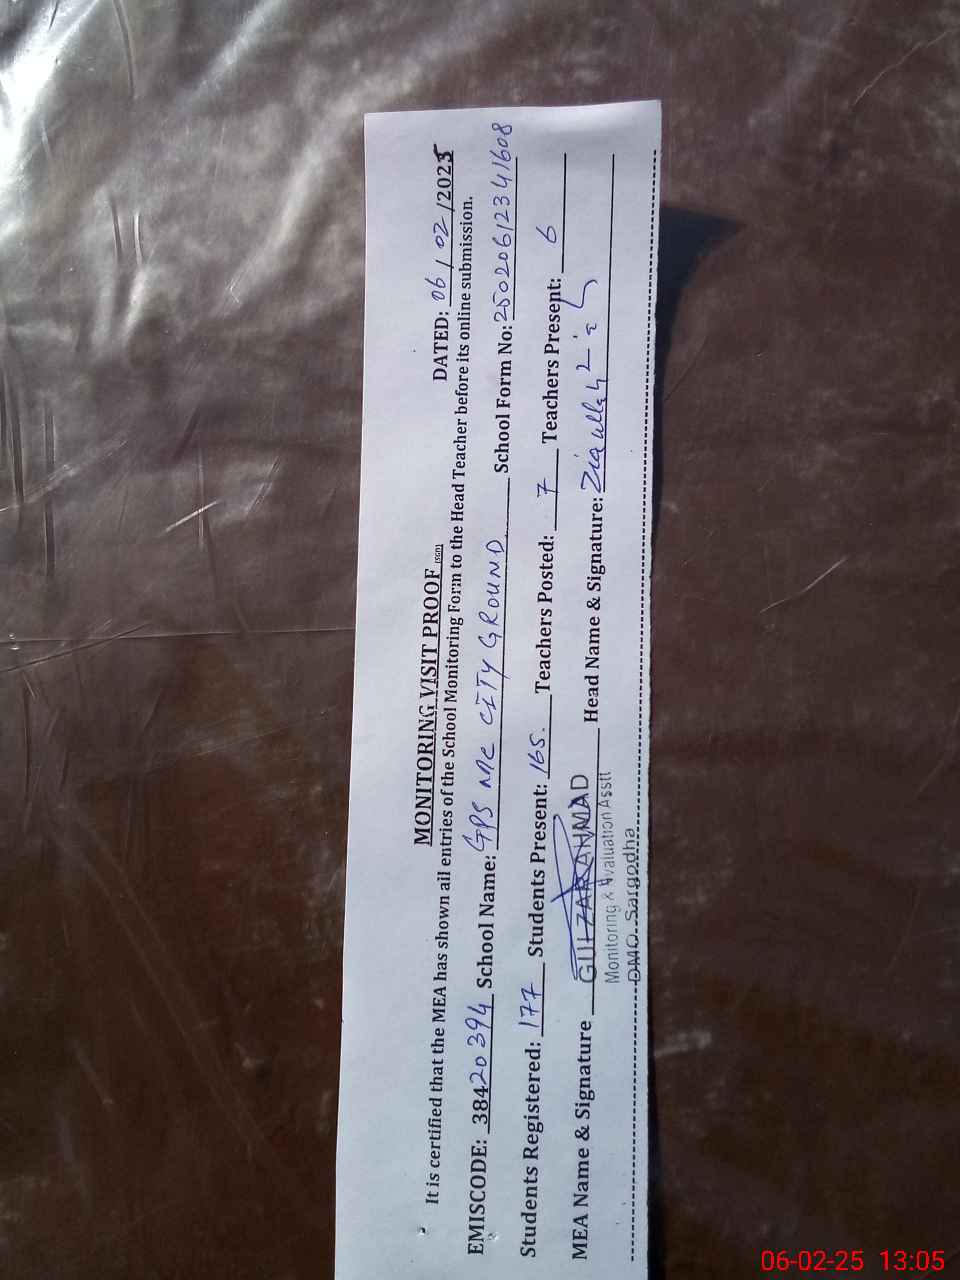 MONITORING VISIT PROOF
DATED: 06/02/2025
It is certified that the MEA has shown all entries of the School Monitoring Form to the Head Teacher before its online submission.
EMISCODE: 38420394 School Name: GPS MC CITY GROUND School Form No: 25020612341608
Students Registered: 177 Students Present: 165. Teachers Posted: 7 Teachers Present: 6
MEA Name & Signature GULZAR AHMAD Head Name & Signature: Ziaullah
Monitoring & Evaluation Asstt
DMO Sargodha
06-02-25 13:05